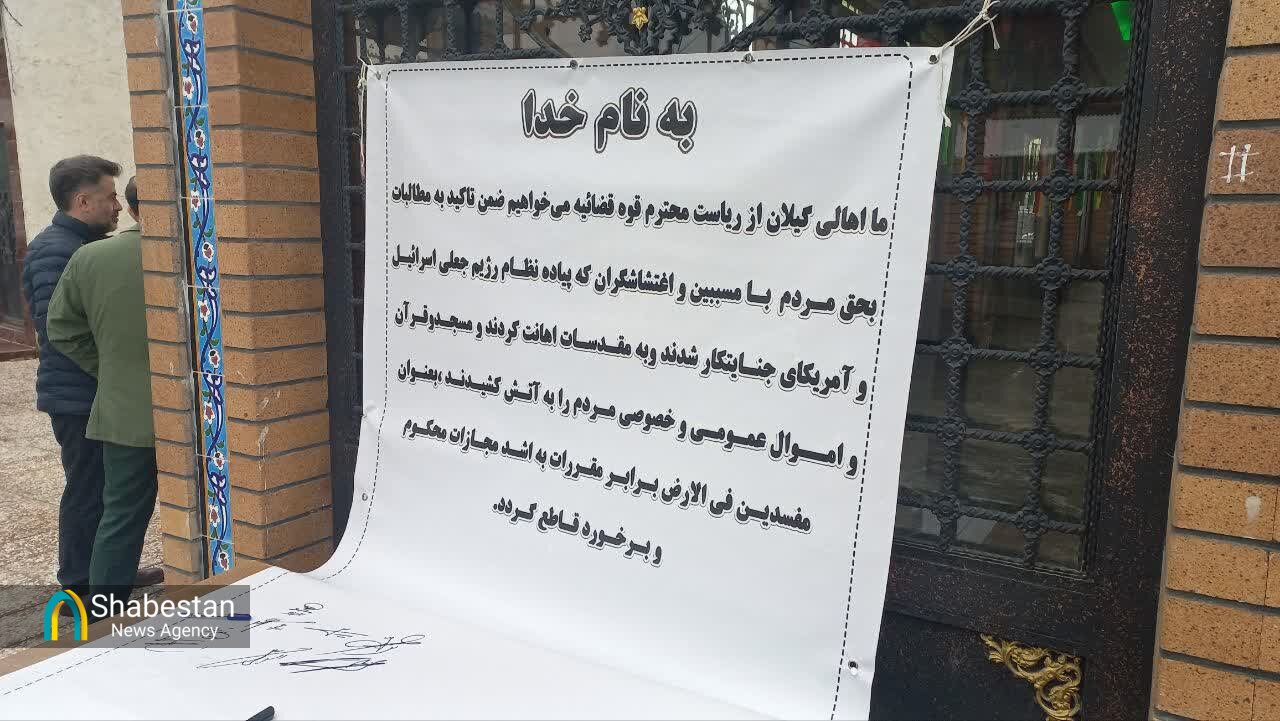 به نام خدا
ما اهالی گیلان از ریاست محترم قوه قضائیه می‌خواهیم ضمن تاکید به مطالبات
بحق مردم با مسببین و اغتشاشگران که پیاده نظام رژیم جعلی اسرائیل
و آمریکای جنایتکار شدند وبه مقدسات اهانت کردند و مسجدوقرآن
و اموال عمومی و خصوصی مردم را به آتش کشیدند ،بعنوان
مفسدین فی الارض برابر مقررات به اشد مجازات محکوم
و برخورد قاطع گردد.
Shabestan
News Agency